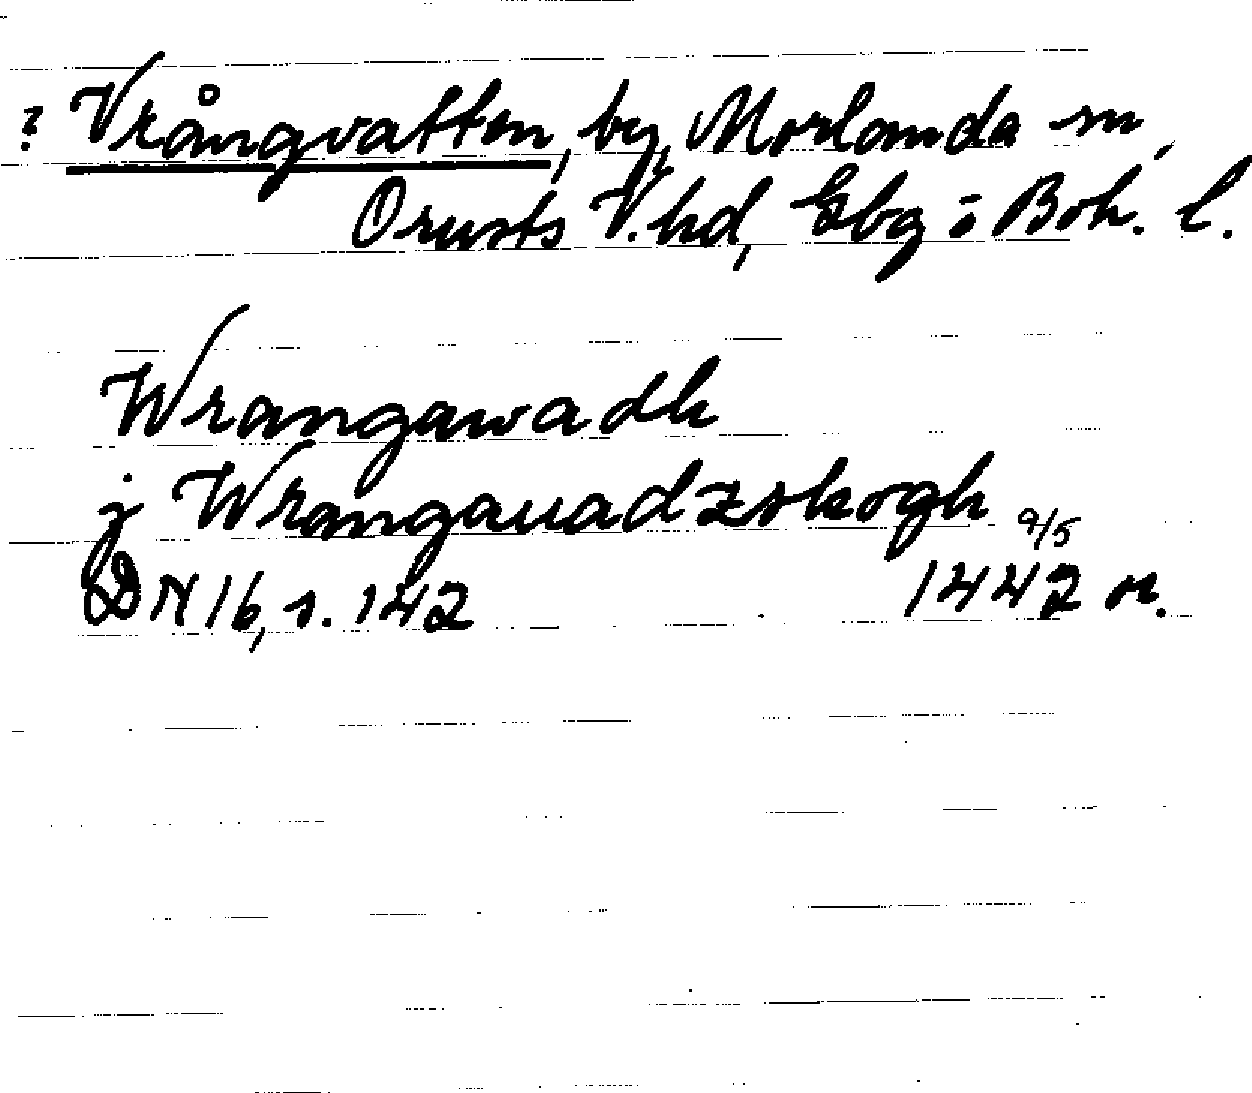 ? Vrångvatten, by, Morlanda sn,
Orusts V. hd, Gbg o Boh. l.
Wrangawadh
j Wrangauadzskogh 9/5
DN 16, s. 142 1442 or.